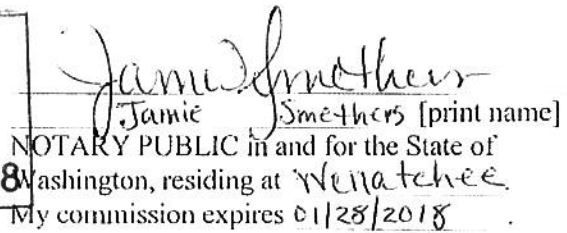 Jamie Smethers
Jamie Smethers [print name]
NOTARY PUBLIC in and for the State of
8 Washington, residing at Wenatchee.
My commission expires 01/28/2018 .